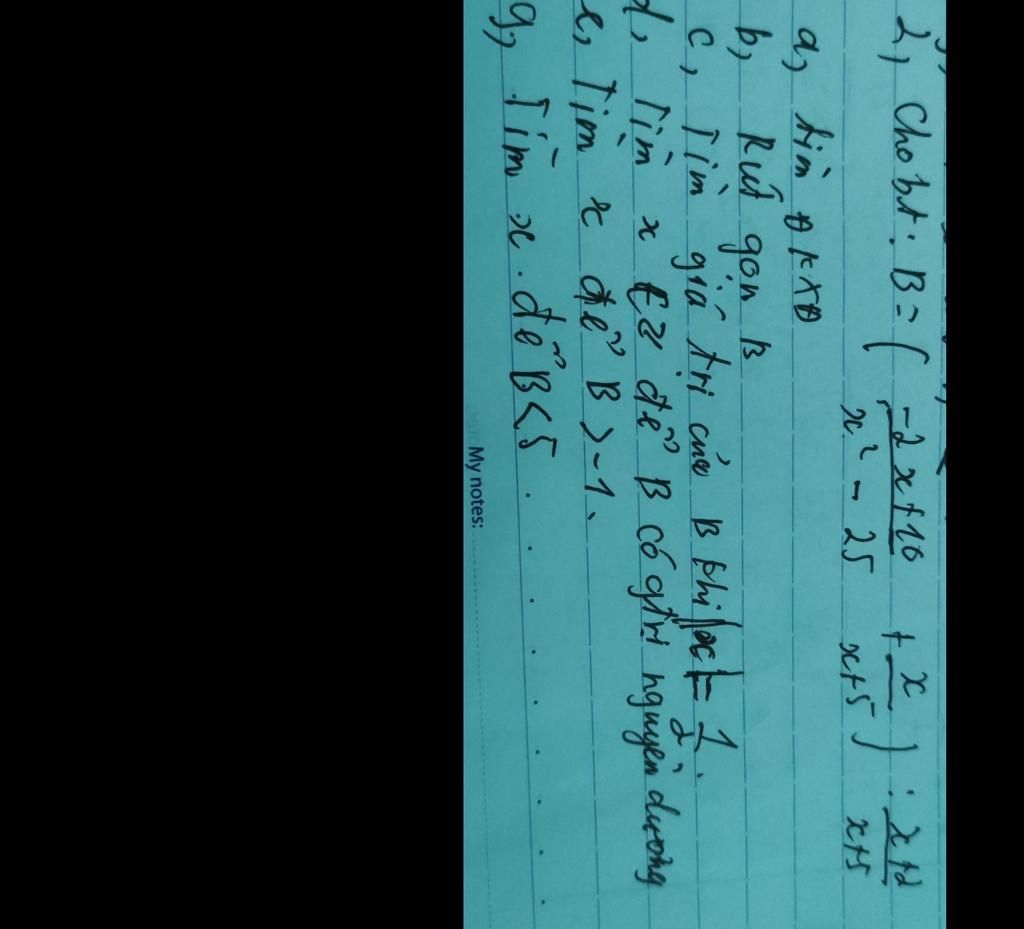 2, Cho bt: B = ( -2x+10 / x² - 25 + x / x+5 ) : x+2 / x+5
a, tìm ĐKXĐ
b, Rút gọn B
c, Tìm giá trị của B khi |x| = 1/2.
d, Tìm x ∈ Z để B có gtrị nguyên dương
e, Tìm x để B > -1.
g, Tìm x để B < 5
My notes: